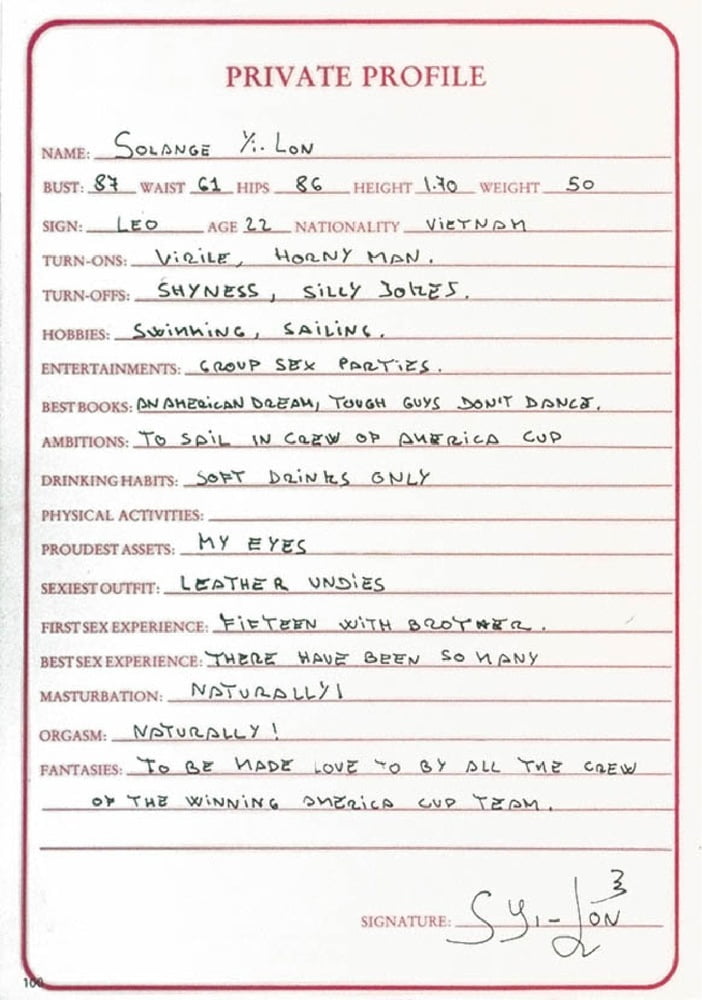 PRIVATE PROFILE
NAME: SOLANGE Yi. LON
BUST: 87 WAIST 61 HIPS 86 HEIGHT 1.70 WEIGHT 50
SIGN: LEO AGE 22 NATIONALITY VIETNAM
TURN-ONS: VIRILE, HORNY MAN.
TURN-OFFS: SHYNESS, SILLY JOKES.
HOBBIES: SWIMMING, SAILING.
ENTERTAINMENTS: GROUP SEX PARTIES.
BEST BOOKS: AN AMERICAN DREAM, TOUGH GUYS DON'T DANCE.
AMBITIONS: TO SAIL IN CREW OF AMERICA CUP
DRINKING HABITS: SOFT DRINKS ONLY
PHYSICAL ACTIVITIES:
PROUDEST ASSETS: MY EYES
SEXIEST OUTFIT: LEATHER UNDIES
BEST SEX EXPERIENCE: THERE HAVE BEEN SO MANY
MASTURBATION: NATURALLY!
ORGASM: NATURALLY!
FANTASIES: TO BE MADE LOVE TO BY ALL THE CREW
OF THE WINNING AMERICA CUP TEAM.
SIGNATURE: S Yi-LON
100